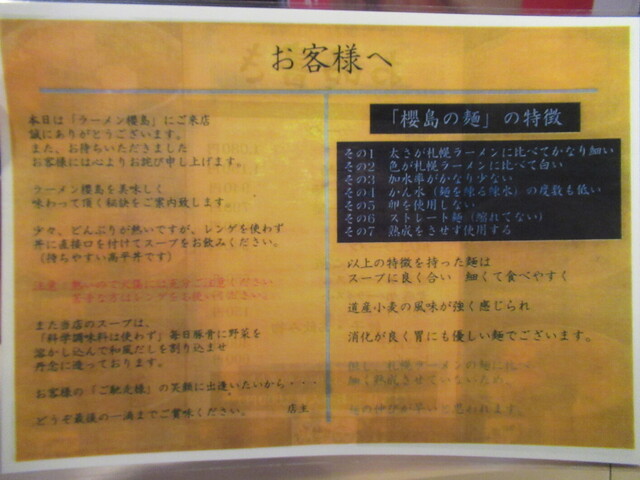 お客様へ
本日は「ラーメン櫻島」にご来店
誠にありがとうございます。
また、お待ちいただきました
お客様には心よりお詫び申し上げます。
ラーメン櫻島を美味しく
味わって頂く秘訣をご案内致します。
少々、どんぶりが熱いですが、レンゲを使わず
丼に直接口を付けてスープをお飲みください。
（持ちやすい高平丼です）
注意：熱いのご火傷には充分ご注意ください
苦手な方はレンゲをお使いください。
また当店のスープは、
「科学調味料は使わず」毎日豚骨に野菜を
溶かし込んで和風だしを割り込ませ
丹念に造っております。
お客様の「ご馳走様」の笑顔に出逢いたいから・・・
どうぞ最後の一滴までご賞味ください。
店主
「櫻島の麺」の特徴
その1 太さが札幌ラーメンに比べてかなり細い
その2 色が札幌ラーメンに比べて白い
その3 加水率がかなり少ない
その4 かん水（麺を練る練水）の度数も低い
その5 卵を使用しない
その6 ストレート麺（縮れてない）
その7 熟成をさせず使用する
以上の特徴を持った麺は
スープに良く合い 細くて食べやすく
道産小麦の風味が強く感じられ
消化が良く胃にも優しい麺でございます。
但し、札幌ラーメンの麺に比べ
細く熟成させていないため
麺の伸びが早いと思われます。